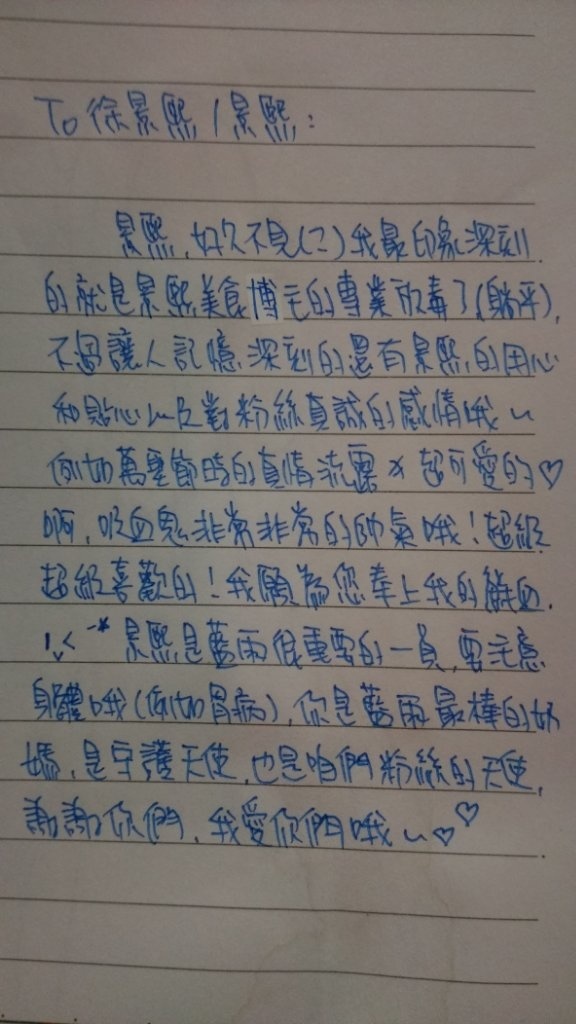 To 徐景熙/景熙:
景熙,好久不見(二)我最印象深刻
的就是景熙美食博主的專業放毒了(躺平),
不過讓人記憶深刻的還有景熙的用心
和貼心以及對粉絲真誠的感情哦~
例如萬聖節時的真情流露 超可愛的♡
啊,吸血鬼非常非常的帥氣哦!超級
超級喜歡的!我願為您奉上我的鮮血.
景熙是藍雨很重要的一員,要注意
身體哦(例如胃病),你是藍雨最棒的奶
媽,是守護天使,也是咱們粉絲的天使,
謝謝你們,我愛你們哦~♡♡